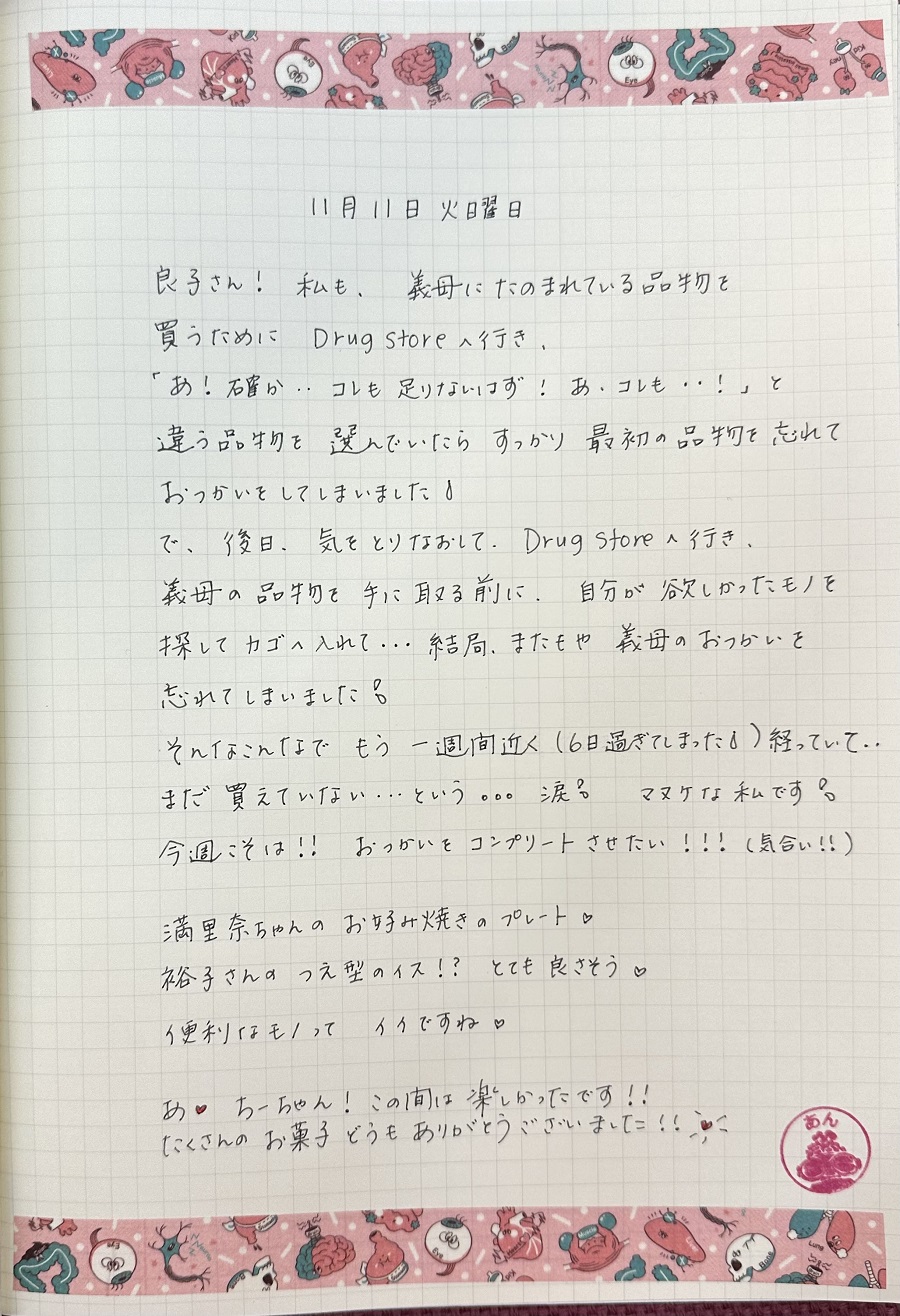 11月11日 火曜日
良子さん! 私も、 義母に たのまれている品物を
買うために Drug Storeへ行き、
「あ!確か‥ コレも 足りないはず! あ、コレも‥!」と
違う品物を 選んでいたら すっかり 最初の品物を忘れて
おつかいをしてしまいました
で、後日、気をとりなおして、Drug Storeへ行き、
義母の品物を手に取る前に、 自分が欲しかったモノを
探してカゴへ入れて・・・結局、またもや 義母のおつかいを
忘れてしまいました
そんなこんなで もう 一週間近く(6日過ぎてしまった)経っていて‥
まだ 買えていない・・・という。。。 涙 マヌケな私です
今週こそは!! おつかいをコンプリートさせたい!!!(気合い!!)
満里奈ちゃんの お好み焼きのプレート♡
裕子さんの つえ型のイス!? とても良さそう♡
便利なモノって イイですね♡
あ♥ ちーちゃん!この間は楽しかったです!!
たくさんの お菓子 どうも ありがとうございました!!♥
あん
Eye
Eye
Eye
Eye